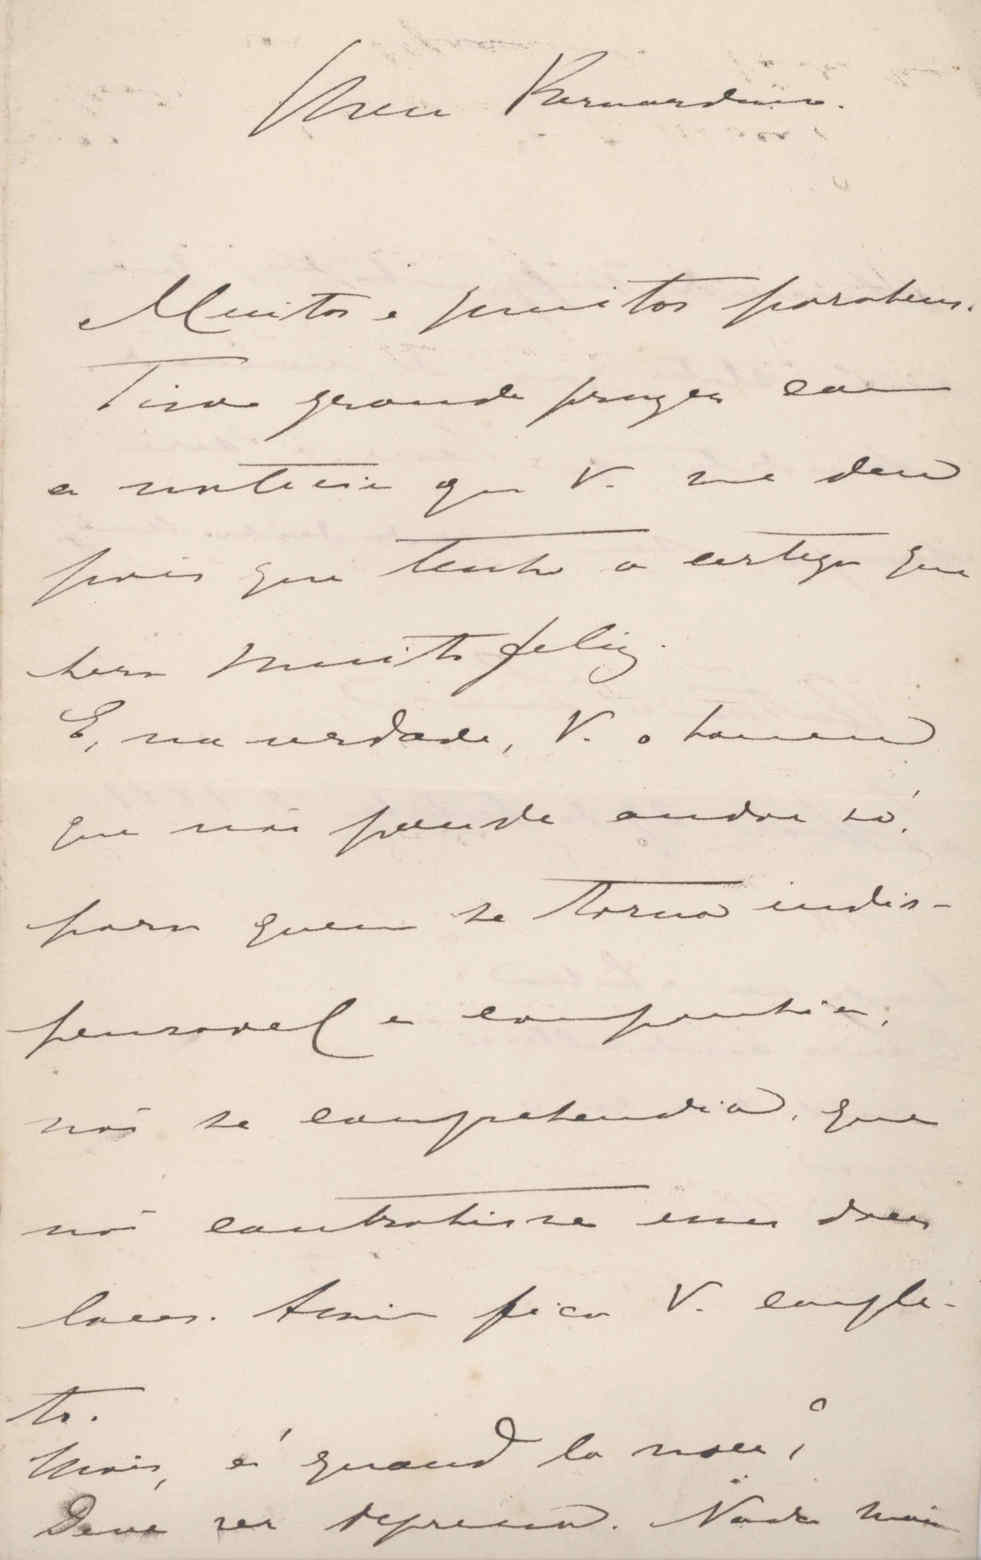 Meu Bernardino.
Muitos e muitos parabens.
Tive grande prazer com
a noticia que V. me deu
pois que tenho a certeza que
sera muito feliz.
E, na verdade, V. o homem
que não pode andar só,
para quem se torna indis-
pensavel a companhia,
não se comprehendia, que
não contrahisse esses doces
laços. Assim fica V. comple-
to.
Mais, é quand la noce?
Deve ser depressa. Nada mais